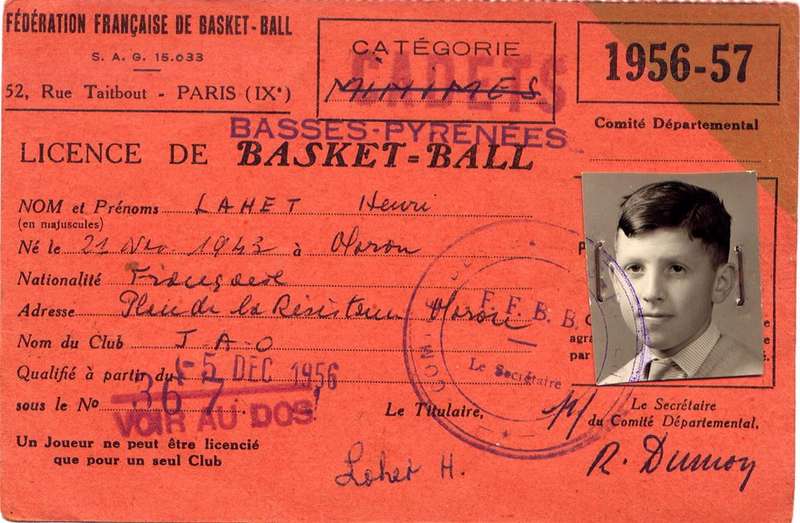 FÉDÉRATION FRANÇAISE DE BASKET-BALL
S. A. G. 15.033
52, Rue Taitbout - PARIS (IXᵉ)
CATÉGORIE
MINIMES
CADETS
1956-57
Comité Départemental
BASSES-PYRENÉES
LICENCE DE BASKET=BALL
NOM et Prénoms LAHET Henri
(en majuscules)
Né le 21 Nov 1943 à Oloron
Nationalité Française
Adresse Place de la Résistance Oloron
Nom du Club J A O
Qualifié à partir du -5 DEC 1956
sous le No 367
VOIR AU DOS
Un Joueur ne peut être licencié
que pour un seul Club
F. F. B. B.
Le Secrétaire
Le Titulaire,
Le Secrétaire
du Comité Départemental,
agra
par
H.